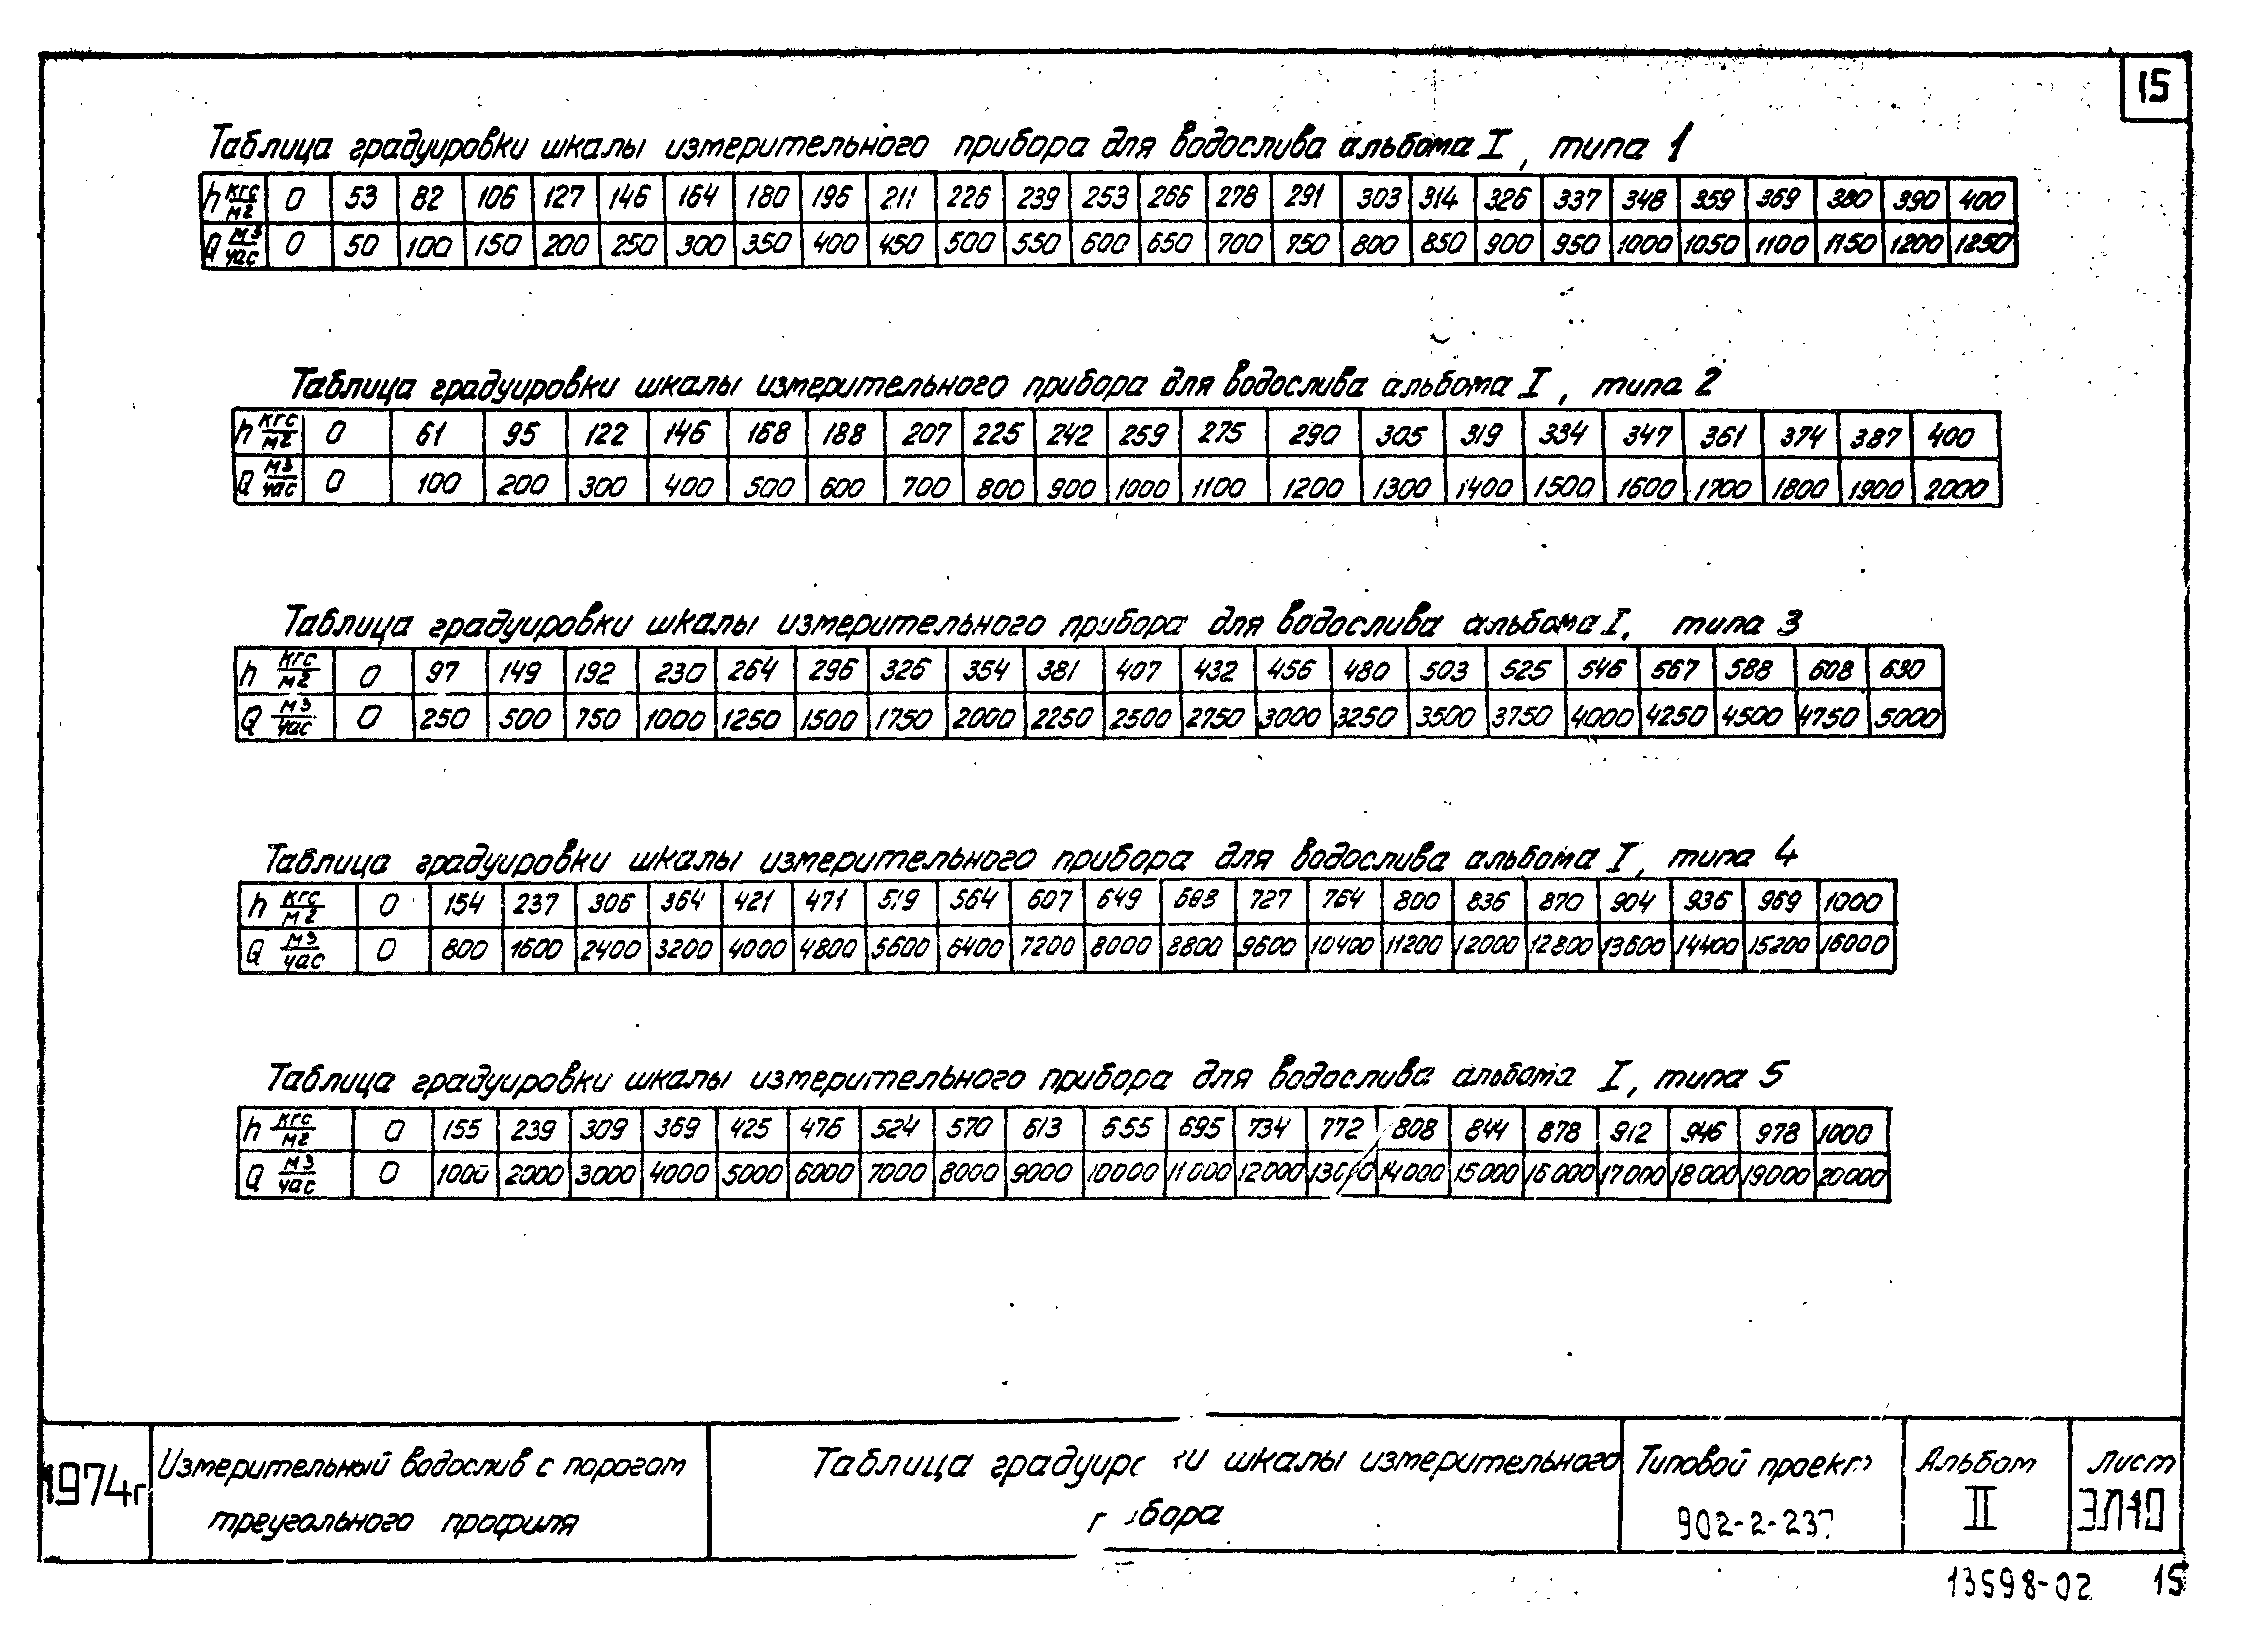 15
Таблица градуировки шкалы измерительного прибора для водослива альбома I, типа 1
h кгс/м2 0 53 82 106 127 146 164 180 196 211 226 239 253 266 278 291 303 314 326 337 348 359 369 380 390 400
Q м3/час 0 50 100 150 200 250 300 350 400 450 500 550 600 650 700 750 800 850 900 950 1000 1050 1100 1150 1200 1250
Таблица градуировки шкалы измерительного прибора для водослива альбома I, типа 2
h кгс/м2 0 61 95 122 146 168 188 207 225 242 259 275 290 305 319 334 347 361 374 387 400
Q м3/час 0 100 200 300 400 500 600 700 800 900 1000 1100 1200 1300 1400 1500 1600 1700 1800 1900 2000
Таблица градуировки шкалы измерительного прибора для водослива альбома I, типа 3
h кгс/м2 0 97 149 192 230 264 296 326 354 381 407 432 456 480 503 525 546 567 588 608 630
Q м3/час 0 250 500 750 1000 1250 1500 1750 2000 2250 2500 2750 3000 3250 3500 3750 4000 4250 4500 4750 5000
Таблица градуировки шкалы измерительного прибора для водослива альбома I, типа 4
h кгс/м2 0 154 237 306 364 421 471 519 564 607 649 688 727 764 800 836 870 904 936 969 1000
Q м3/час 0 800 1600 2400 3200 4000 4800 5600 6400 7200 8000 8800 9600 10400 11200 12000 12800 13600 14400 15200 16000
Таблица градуировки шкалы измерительного прибора для водослива альбома I, типа 5
h кгс/м2 0 155 239 309 369 425 476 524 570 613 655 695 734 772 808 844 878 912 946 978 1000
Q м3/час 0 1000 2000 3000 4000 5000 6000 7000 8000 9000 10000 11000 12000 13000 14000 15000 16000 17000 18000 19000 20000
1974г
Измерительный водослив с порогом
треугольного профиля
Таблица градуировки шкалы измерительного
прибора
Типовой проект
902-2-237
Альбом
II
Лист
ЭЛ-10
13598-02 15